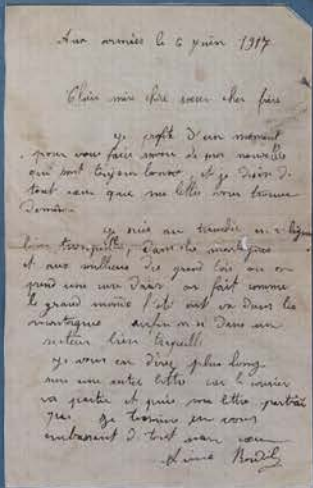 Aux armées le 6 juin 1917
Cher mère chère sœur cher frère
je profite d'un moment
pour vous faire savoir de mes nouvelles
qui sont toujours bonnes, et je désire de
tout cœur que ma lettre vous trouve
de même.
je suis au tranchée en 2 ligne
bien tranquille, dans les montagnes
et aux milieux des grand bois ou on
prend une on fait comme
le grand monde l'été ont va dans les
montagnes enfin dans un
secteur bien tranquille.
je vous en dirée plus long
sur une autre lettre car le courrier
va partir et puis ma lettre
pas. je termine en vous
embrassant de tout mon cœur